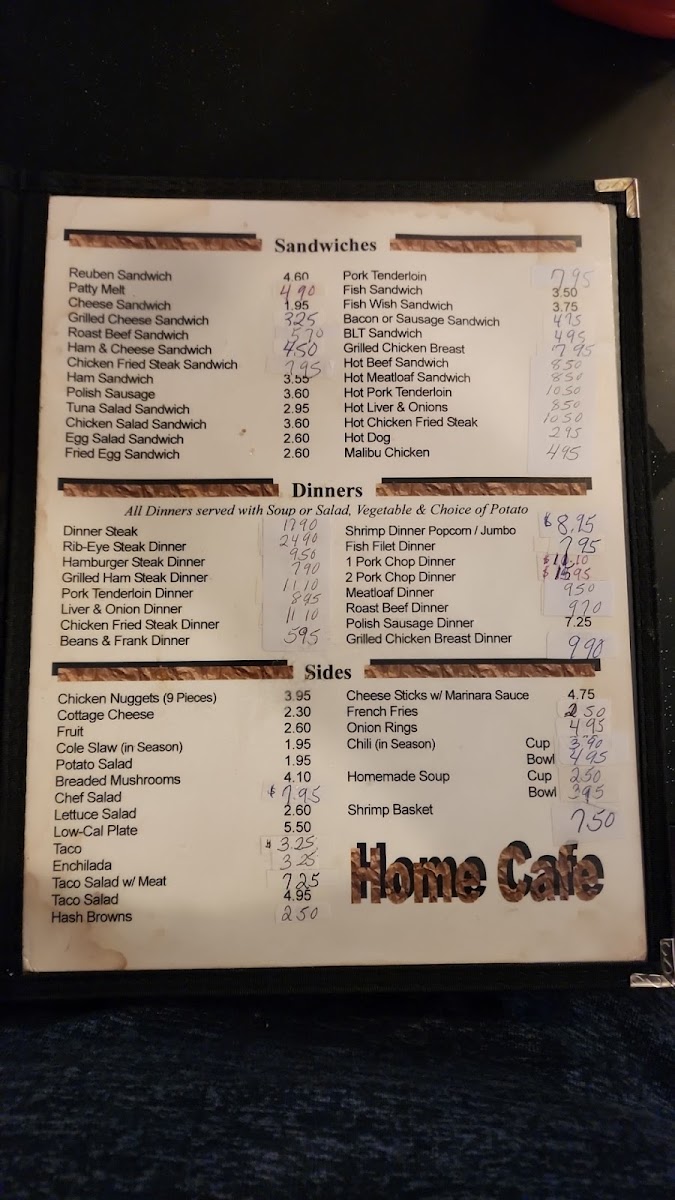 Sandwiches
Reuben Sandwich 4.60
Patty Melt 4 90
Cheese Sandwich 1.95
Grilled Cheese Sandwich 325
Roast Beef Sandwich 570
Ham & Cheese Sandwich 450
Chicken Fried Steak Sandwich 795
Ham Sandwich 3.55
Polish Sausage 3.60
Tuna Salad Sandwich 2.95
Chicken Salad Sandwich 3.60
Egg Salad Sandwich 2.60
Fried Egg Sandwich 2.60
Pork Tenderloin 795
Fish Sandwich 3.50
Fish Wish Sandwich 3.75
Bacon or Sausage Sandwich 475
BLT Sandwich 495
Grilled Chicken Breast 795
Hot Beef Sandwich 850
Hot Meatloaf Sandwich 850
Hot Pork Tenderloin 1050
Hot Liver & Onions 850
Hot Chicken Fried Steak 1050
Hot Dog 295
Malibu Chicken 495
Dinners
All Dinners served with Soup or Salad, Vegetable & Choice of Potato
Dinner Steak 1790
Rib-Eye Steak Dinner 2490
Hamburger Steak Dinner 950
Grilled Ham Steak Dinner 790
Pork Tenderloin Dinner 11 10
Liver & Onion Dinner 895
Chicken Fried Steak Dinner 11 10
Beans & Frank Dinner 595
Shrimp Dinner Popcorn / Jumbo $8.95
Fish Filet Dinner 795
1 Pork Chop Dinner
2 Pork Chop Dinner
Meatloaf Dinner 950
Roast Beef Dinner 970
Polish Sausage Dinner 7.25
Grilled Chicken Breast Dinner 990
Sides
Chicken Nuggets (9 Pieces) 3.95
Cottage Cheese 2.30
Fruit 2.60
Cole Slaw (in Season) 1.95
Potato Salad 1.95
Breaded Mushrooms 4.10
Chef Salad $7.95
Lettuce Salad 2.60
Low-Cal Plate 5.50
Taco $3.25
Enchilada 325
Taco Salad w/ Meat 725
Taco Salad 4.95
Hash Browns 250
Cheese Sticks w/ Marinara Sauce 4.75
French Fries 250
Onion Rings 495
Chili (in Season) Cup 390
Bowl 495
Homemade Soup Cup 250
Bowl 395
Shrimp Basket 750
Home Cafe